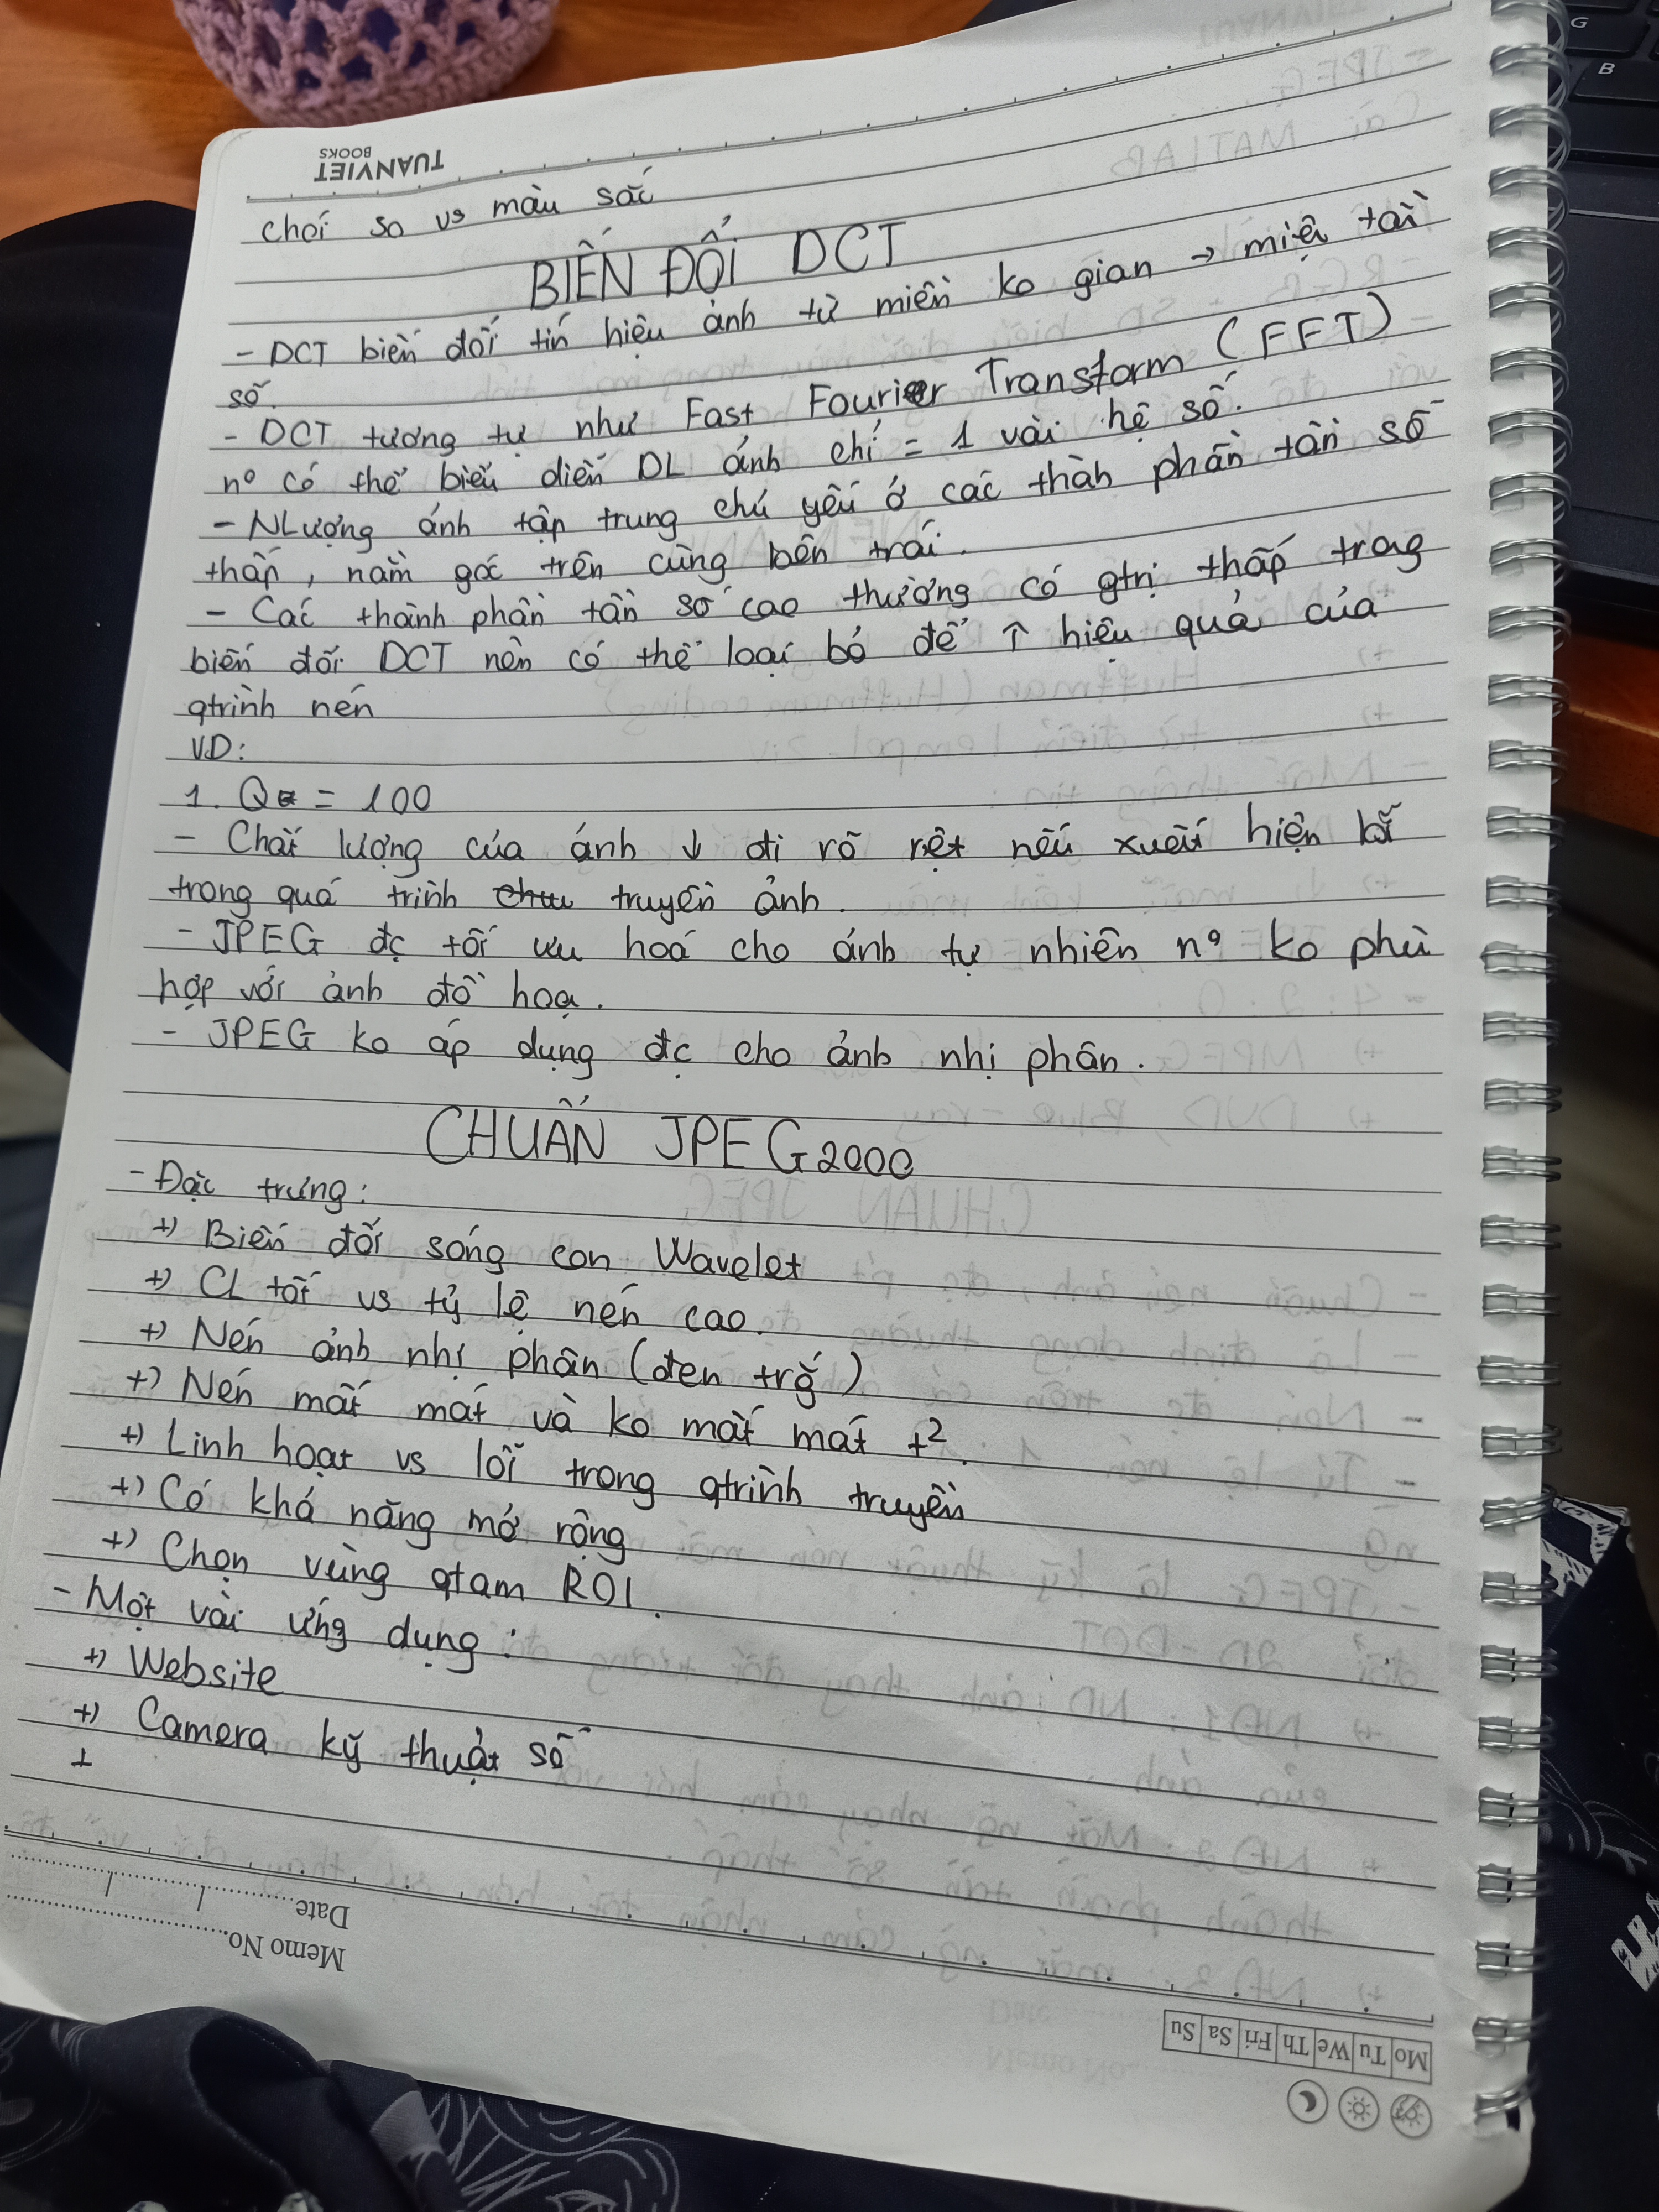 TUANVIET
BOOKS
chói so vs màu sắc
BIẾN ĐỔI DCT
- DCT biến đổi tín hiệu ảnh từ miền ko gian → miền tần
số.
- DCT tương tự như Fast Fourier Transform (FFT)
nº có thể biểu diễn DL ảnh chỉ = 1 vài hệ số.
- NLượng ảnh tập trung chủ yếu ở các thành phần tần số
thấp, nằm góc trên cùng bên trái.
- Các thành phần tần số cao thường có gtrị thấp trog
biến đổi DCT nên có thể loại bỏ để ↑ hiệu quả của
qtrình nén
VD:
1. Q = 100
- Chất lượng của ảnh ↓ đi rõ rệt nếu xuất hiện lỗi
trong quá trình truyền ảnh.
- JPEG đc tối ưu hoá cho ảnh tự nhiên nº ko phù
hợp với ảnh đồ hoạ.
- JPEG ko áp dụng đc cho ảnh nhị phân.
CHUẨN JPEG2000
- Đặc trưng:
+) Biến đổi sóng con Wavelet
+) CL tốt vs tỷ lệ nén cao.
+) Nén ảnh nhị phân (đen trắg)
+) Nén mất mát và ko mất mát t².
+) Linh hoạt vs lỗi trong qtrình truyền
+) Có khả năng mở rộng
+) Chọn vùng qtam ROI.
- Một vài ứng dụng:
+) Website
+) Camera kỹ thuật số
+
Date
Memo No.
Mo Tu We Th Fri Sa Su